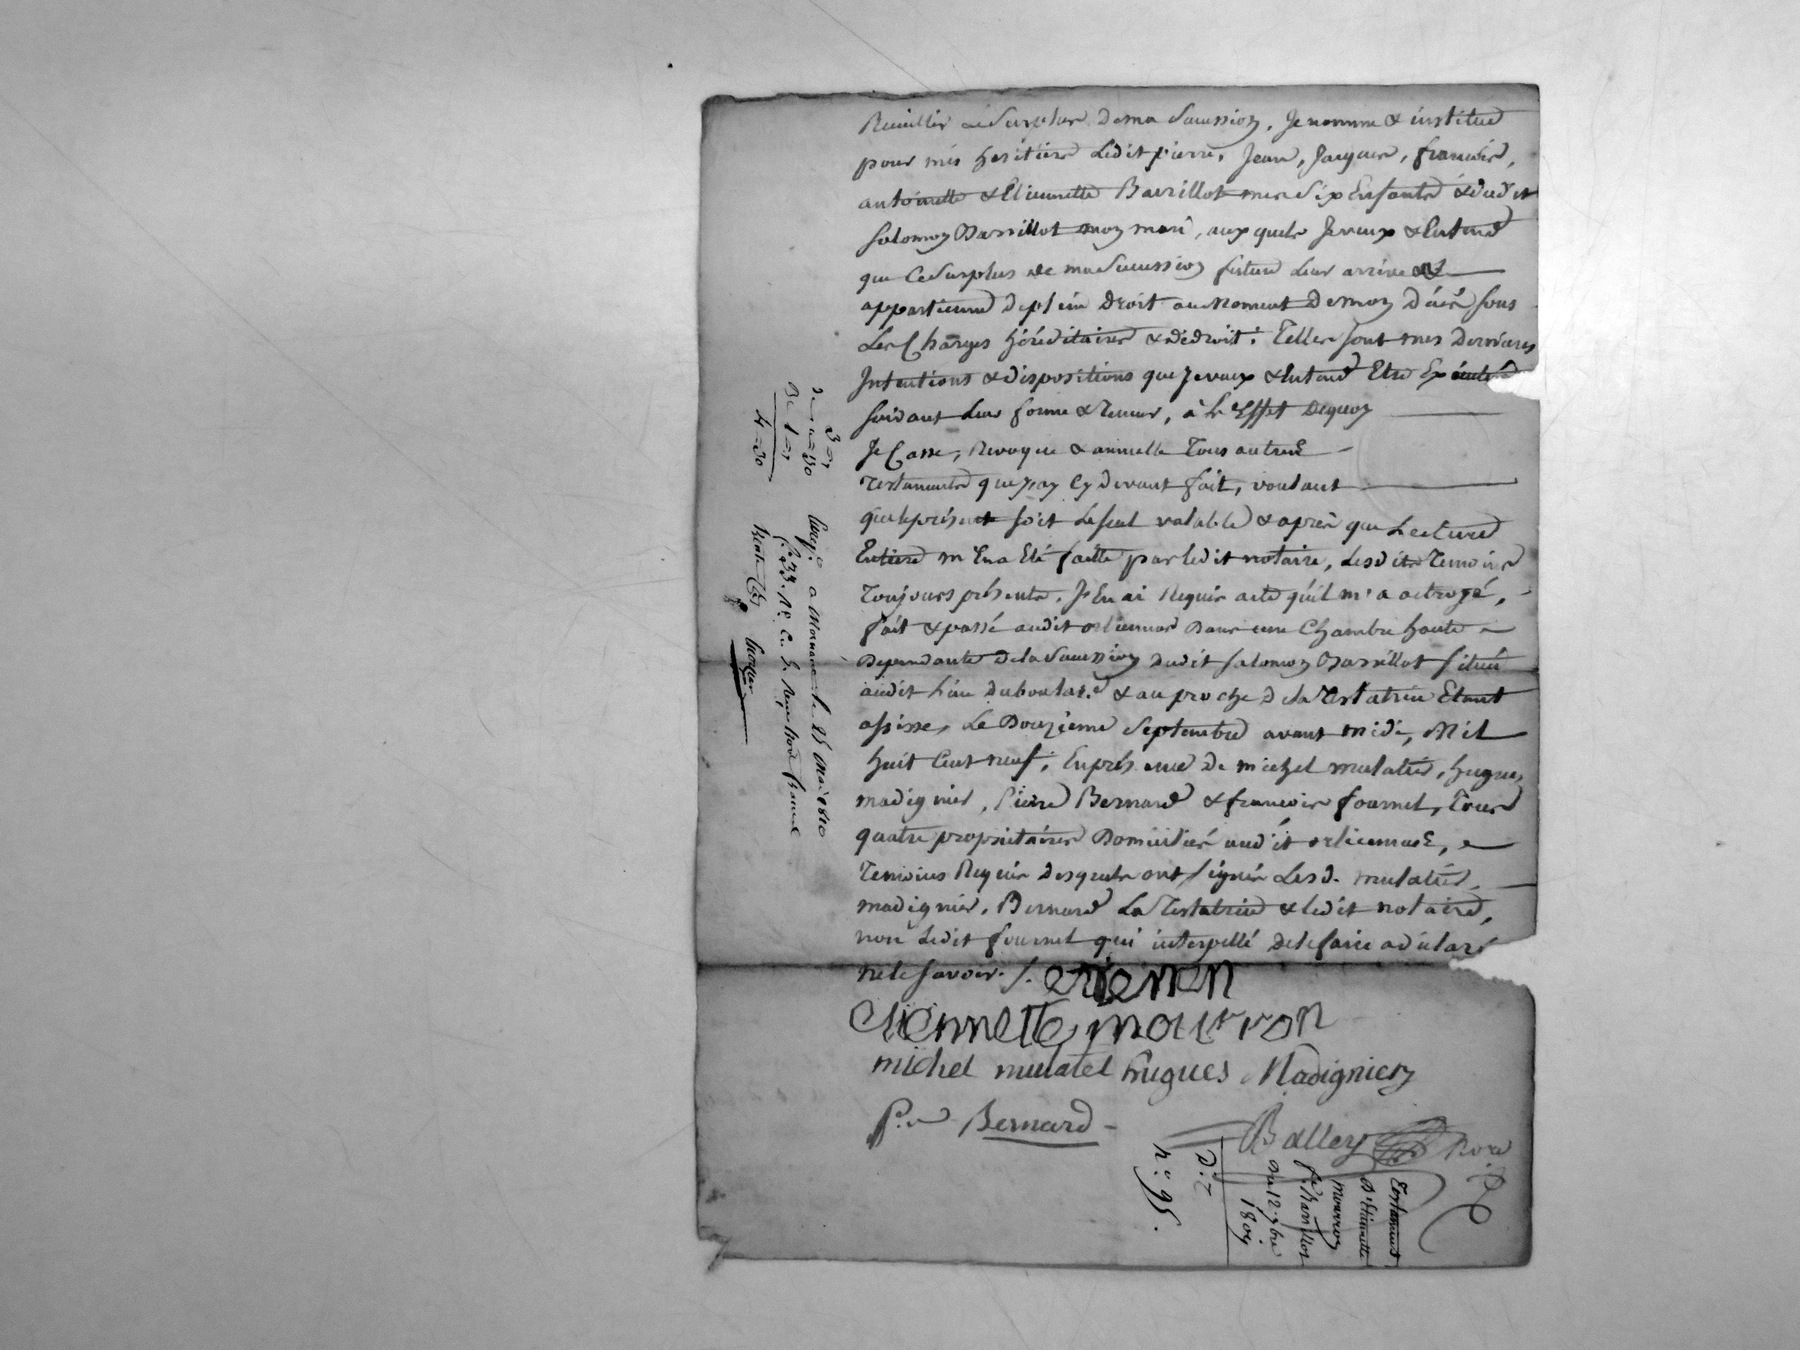 Recuillir le Surplus de ma Sucession, Je nomme & institue
pour mes heritiers Ledit pierre, Jean, Jacques, francois,
antoinette & Etiennette Barrillot mes Six Enfants & dudit
Salomon Barrillot mon mari, auxquels Je veux & Entend
que ce Surplus de ma Sucession future leur arrive &
appartienne de plein Droit au Moment de mon décès sous
Les Charges héréditaires & de droit. Telles sont mes Dernieres
Intentions & dispositions que Je veux & Entend Etre Exécutées
suivant leur forme & teneur, à L'Effet Dequoy
Je Casse, Revoque & annulle Tous autres
Testaments que J'ay Cy devant fait, voulant
que le présent soit le seul valable & après que Lecture
Entiere m'En a Eté faitte par ledit notaire, Lesdits Temoins
Toujours présents, J'En ai Requis acte qu'il m'a octroyé,
fait & passé audit Dans une Chambre haute
Dependante de la Sucession dudit Salomon Barrillot située
audit lieu & au proche de la Testatrice Etant
assisse, Le Douzieme Septembre avant midi, Mil
huit Cent neuf, En présence de michel mulatier, hugues
madignier, Pierre Bernard & francois fournel, Tous
quatre propriétaires Domiciliés audit
Temoins Requis desquels ont signés Lesd. mulatier,
madignier, Bernard La Testatrice & ledit notaire,
non Ledit fournel qui interpellé de le faire a déclaré
ne le savoir.
etienn
Etiennette mourron
michel mulatel hugues Madignier
Pre Bernard
Balley Nore
Testament
D'Etiennette
Mourron
fe Barrillot
Du 12 7bre
1809
D. 2
n.° 95.
3
4 = 30
Enreg. a le 25 Mai 1810